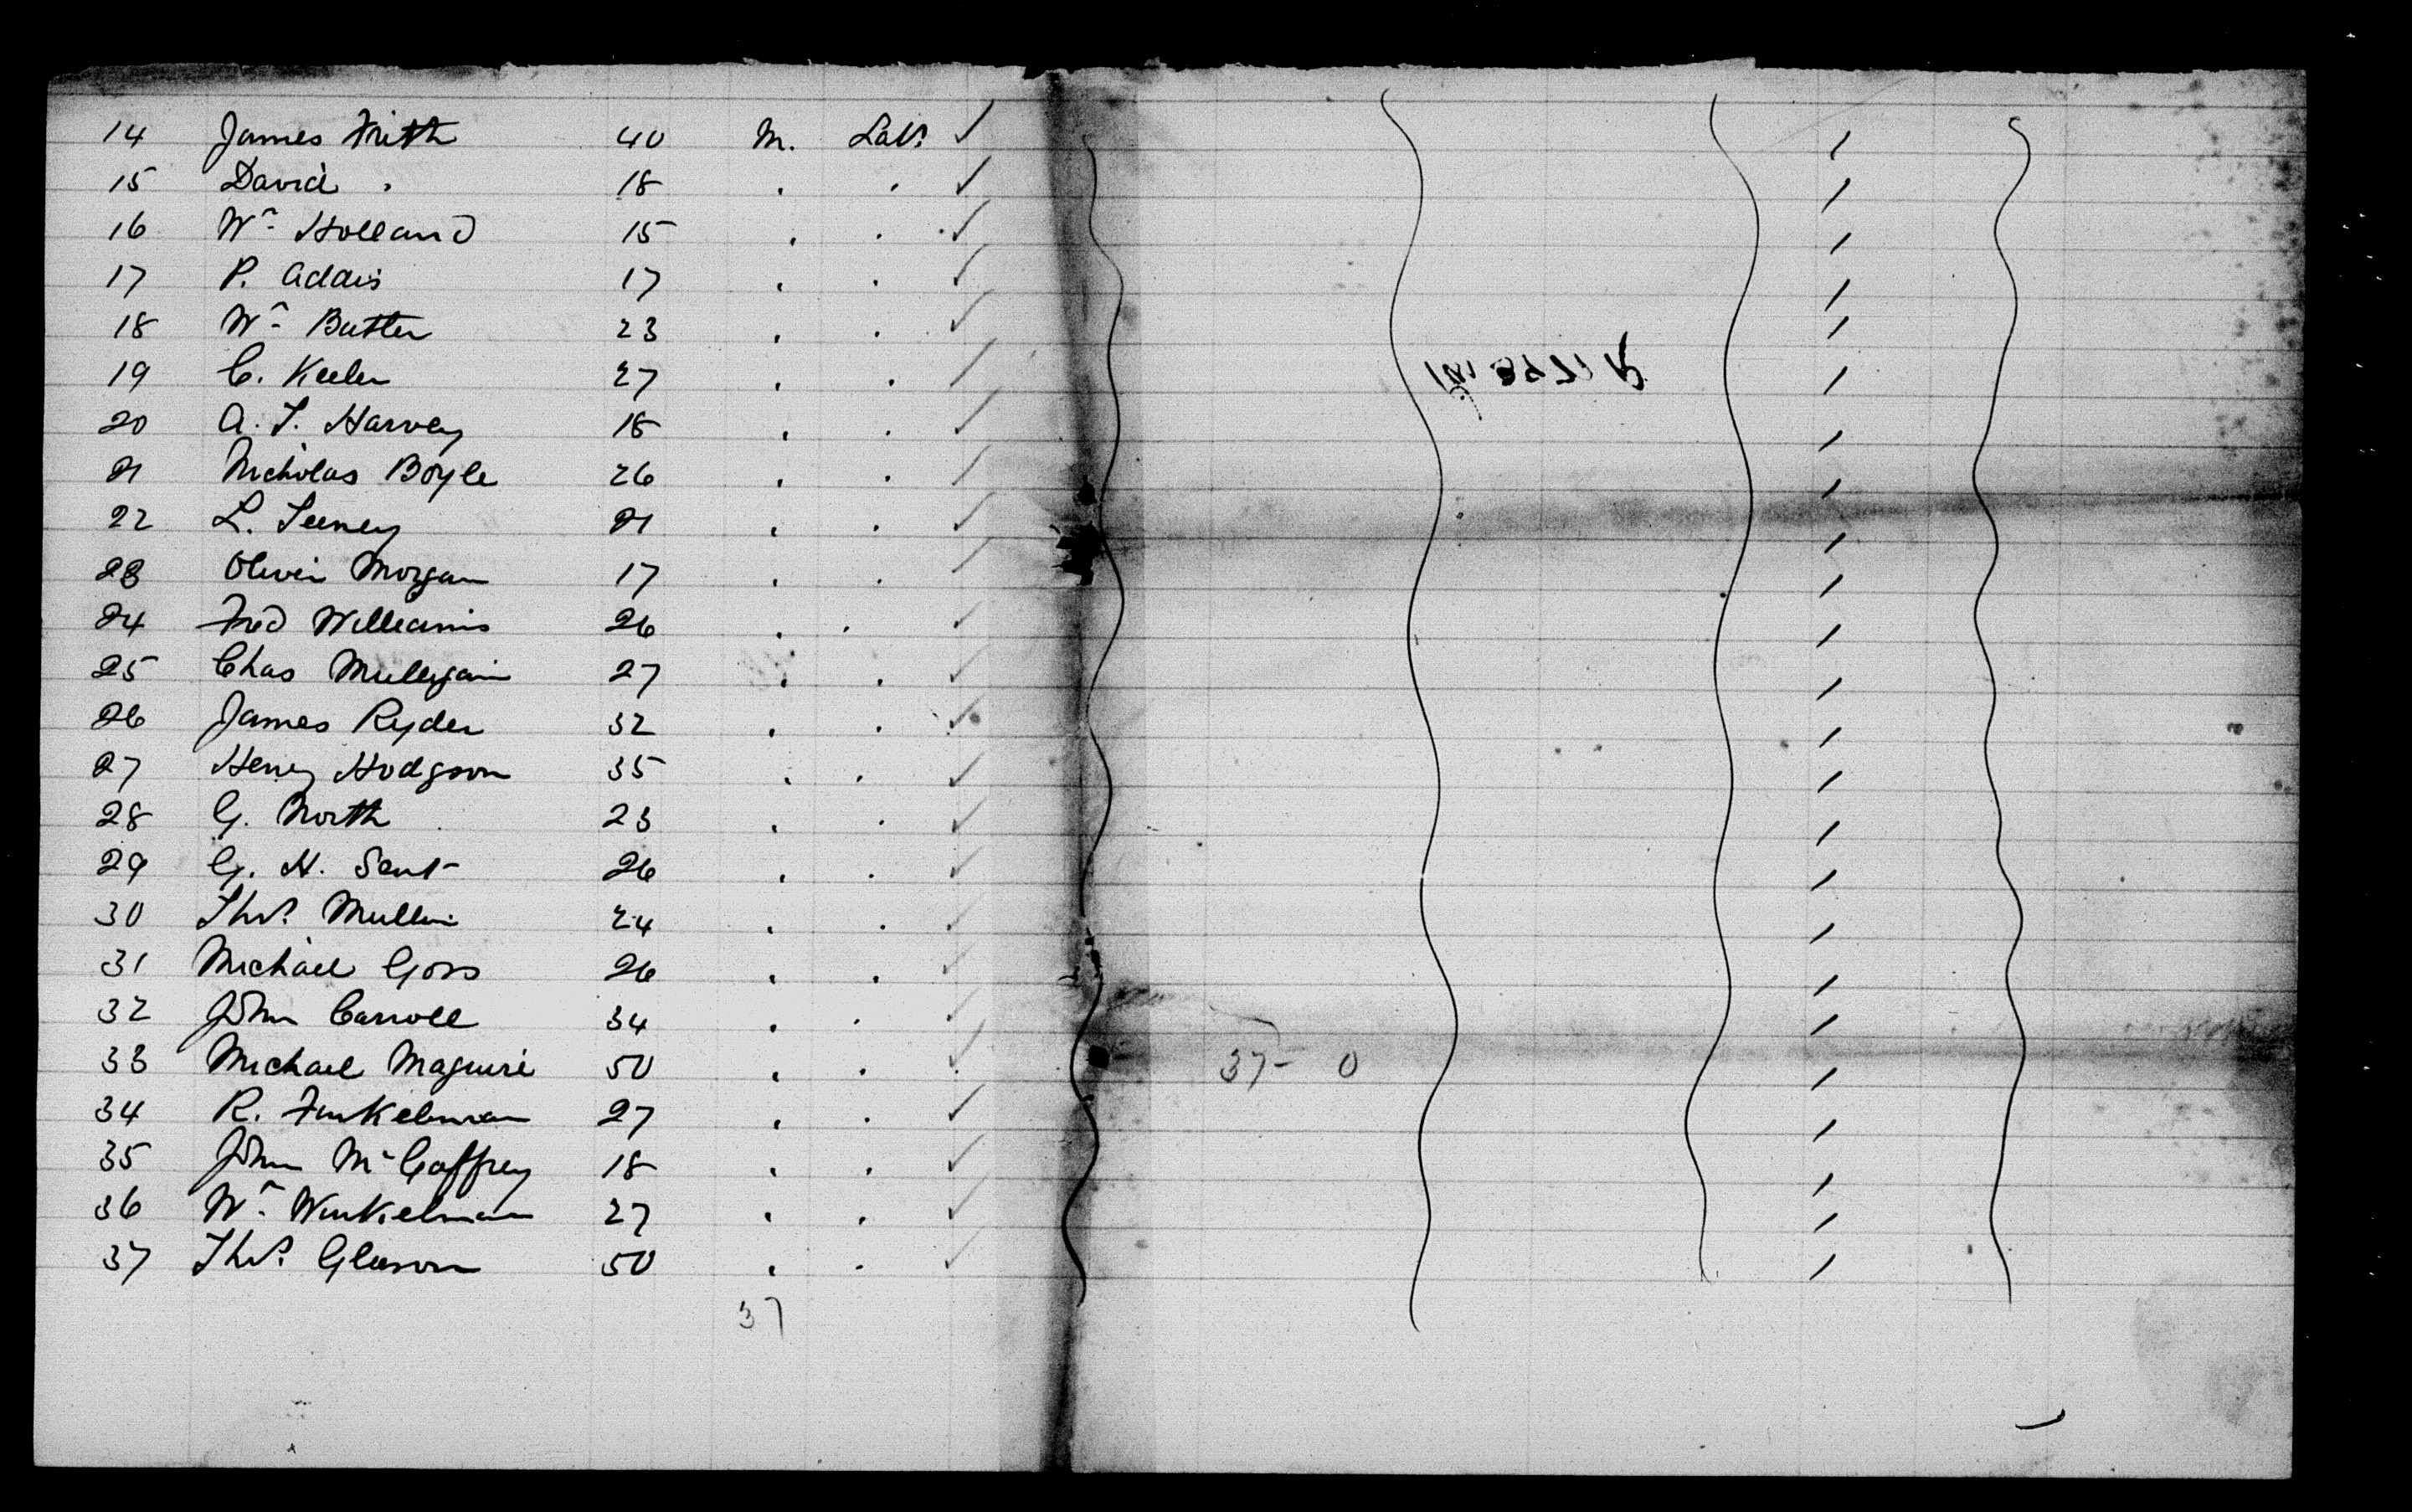 14 James Frith 40 M. Labr ✓
15 David . 18 . . ✓
16 Wm Holland 15 . . ✓
17 P. Addis 17 . . ✓
18 Wm Butler 23 . . ✓
19 C. Keeler 27 . . /
20 A. T. Harvey 18 . . ✓
21 Nicholas Boyle 26 . . /
22 L. Feeney 21 . . ✓
23 Oliver Morgan 17 . . /
24 Fred Williams 26 . . ✓
25 Chas Mulligan 27 . . ✓
26 James Ryder 32 . . ✓
27 Henry Hodgson 35 . . ✓
28 G. North 23 . . ✓
29 G. H. 26 . . ✓
30 Thos. Mullin 24 . . ✓
31 Michael Goss 26 . . ✓
32 John Carroll 34 . . ✓
33 Michael Maguire 50 . . ✓ 37- 0
34 R. Finkelman 27 . . ✓
35 John McGaffrey 18 . . ✓
36 Wm Winkelman 27 . . ✓
37 Thos. Gleeson 50 . . ✓
37